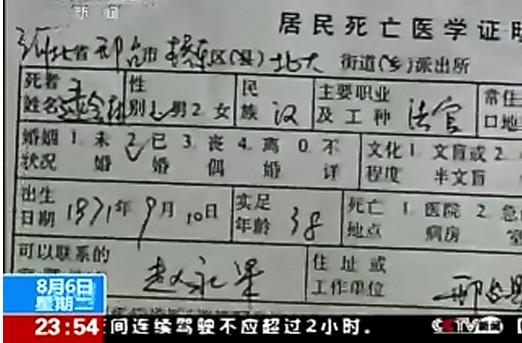 新闻
居民死亡医学证明
河北省邢台市桥东区(县)北大街道(乡)派出所
死者姓名 性别 1 男 2 女 民族 汉 主要职业及工种 法官 常住 口地
婚姻状况 1. 未婚 2. 已婚 3. 丧偶 4. 离婚 0. 不详 文化程度 1. 文盲或半文盲 2.
出生日期 1971年9月10日 实足年龄 38 死亡地点 1. 医院病房 2. 急 室
可以联系的 赵永 住址或工作单位 邢台
8月6日
星期二
23:54 间连续驾驶不应超过2小时.
CCTV新闻